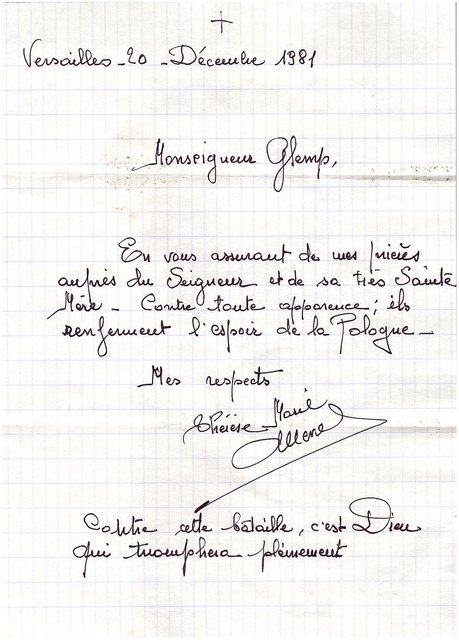 Versailles - 20 - Décembre 1981
Monseigneur Glemp,
En vous assurant de mes prières
auprès du Seigneur et de sa très Sainte
Mère - Contre toute apparence ; ils
renferment l'espoir de la Pologne -
Mes respects
Thérèse-Marie
Contre cette bataille, c'est Dieu
qui triomphera pleinement